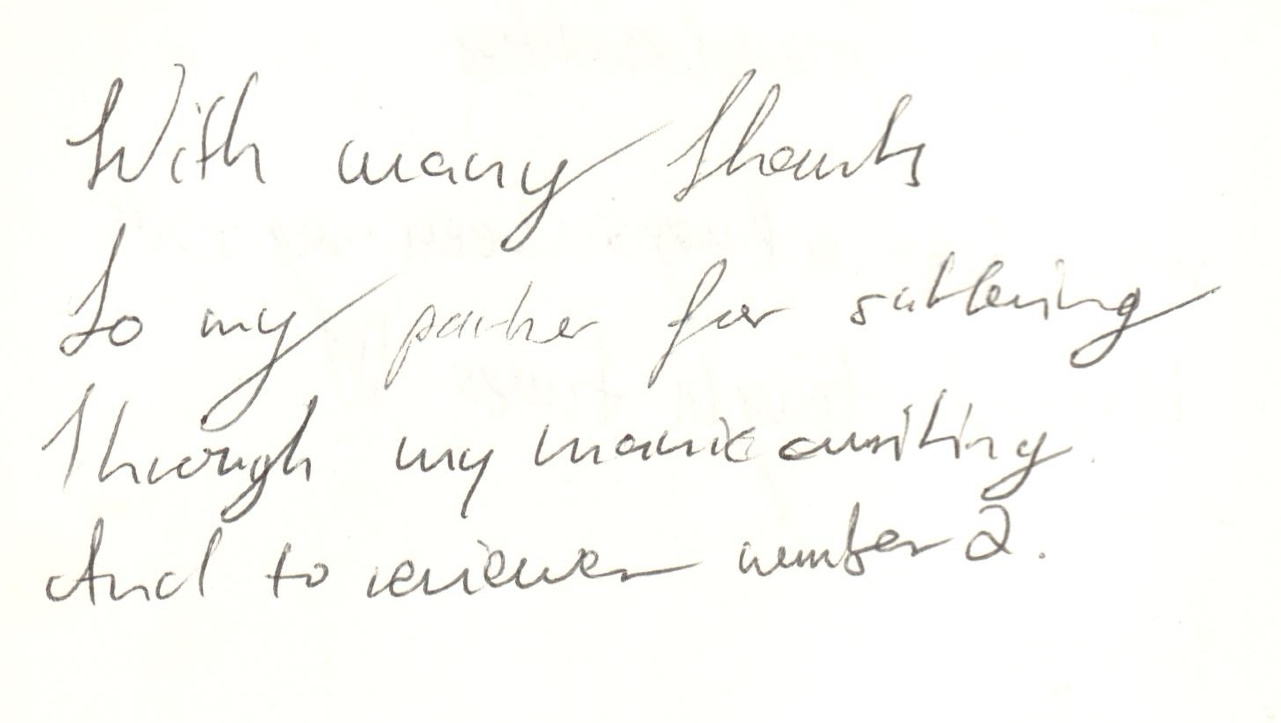 With many thanks
to my partner for suffering
through my manic writing.
And to reviewer number 2.